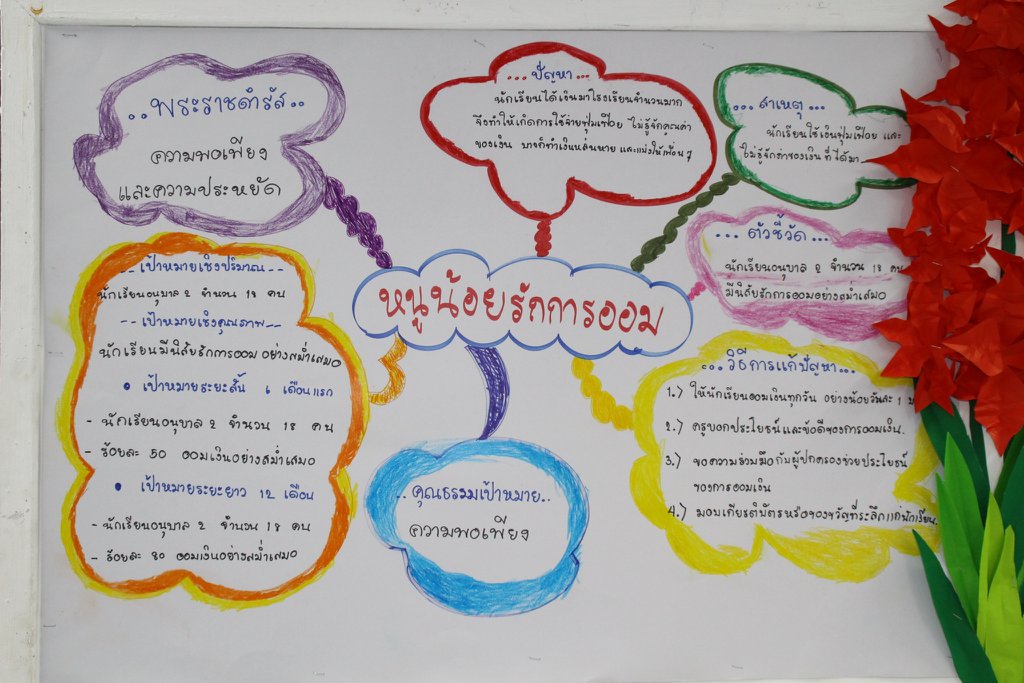 ..พระราชดำรัส..
ความพอเพียง
และความประหยัด
...ปัญหา...
นักเรียนได้เงินมาโรงเรียนจำนวนมาก
จึงทำให้เกิดการใช้จ่ายฟุ่มเฟือย ไม่รู้จักคุณค่า
ของเงิน บางก็ทำเงินหล่นหาย และแบ่งให้เพื่อน ๆ
...สาเหตุ...
นักเรียนใช้เงินฟุ่มเฟือย และ
ไม่รู้จักค่าของเงิน ที่ได้มา
...ตัวชี้วัด...
นักเรียนอนุบาล 2 จำนวน 18 คน
มีนิสัยรักการออมอย่างสม่ำเสมอ
หนูน้อยรักการออม
--เป้าหมายเชิงปริมาณ--
นักเรียนอนุบาล 2 จำนวน 18 คน
--เป้าหมายเชิงคุณภาพ--
นักเรียนมีนิสัยรักการออม อย่างสม่ำเสมอ
• เป้าหมายระยะสั้น 6 เดือนแรก
- นักเรียนอนุบาล 2 จำนวน 18 คน
- ร้อยละ 50 ออมเงินอย่างสม่ำเสมอ
• เป้าหมายระยะยาว 12 เดือน
- นักเรียนอนุบาล 2 จำนวน 18 คน
- ร้อยละ 80 ออมเงินอย่างสม่ำเสมอ
..คุณธรรมเป้าหมาย..
ความพอเพียง
...วิธีการแก้ปัญหา...
1.) ให้นักเรียนออมเงินทุกวัน อย่างน้อยวันละ 1
2.) ครูบอกประโยชน์และข้อดีของการออมเงิน
3.) ขอความร่วมมือกับผู้ปกครองช่วยประโยชน์
ของการออมเงิน
4.) มอบเกียรติบัตรหรือของขวัญที่ระลึกแก่นักเรียน